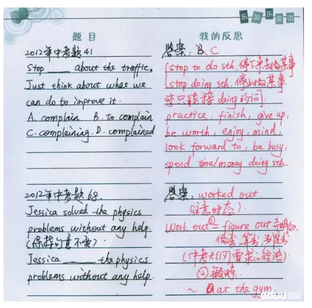 题目
我的反思
2012年中考题41
Stop ___ about the traffic,
Just think about what we
can do to improve it.
A. complain B. To complain
C. complaining. D. complained
答案: B. C
stop to do sth. 停下来去做某事
stop doing sth. 停止做某事
只跟接 doing 的词
practice, finish, give up,
be worth, enjoy, mind,
look forward to, be busy,
spend time/money doing sth.
2012年中考题68.
Jessica solved the physics
problems without any help.
(保持句意不变)
Jessica ___ the physics
problems without any help.
答案: worked out
(注意时态)
work out = figure out
(中考考纲
② 锻炼
~ at the gym.